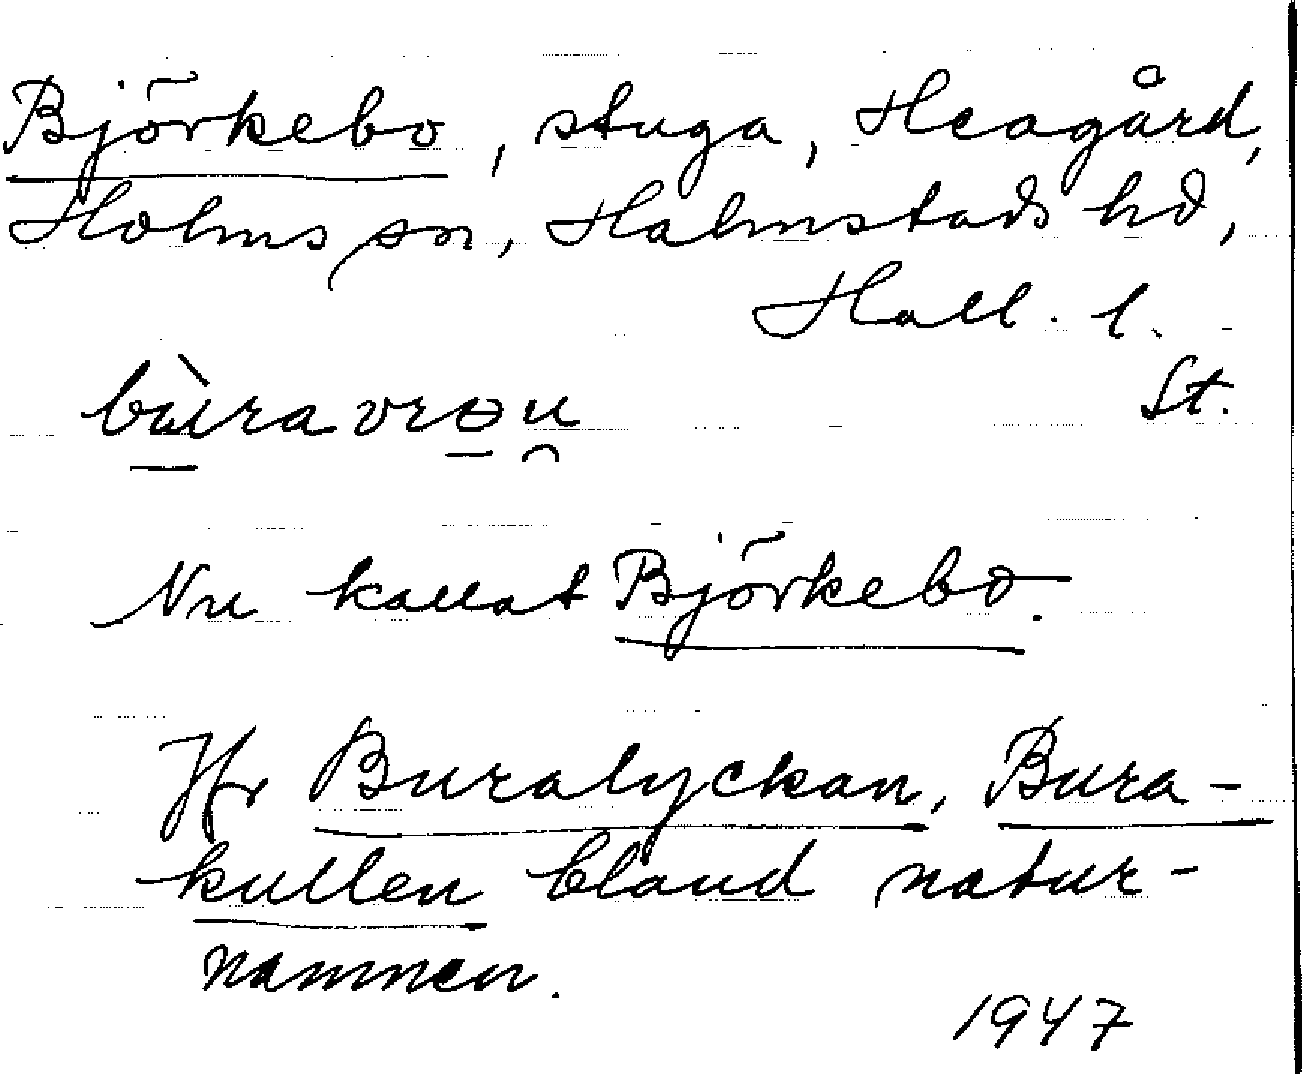 Björkebo, stuga, Heagård,
Holms sn, Halmstads hd,
Hall. l.
St.
Nu kallat Björkebo.
Jfr Buralyckan, Bura-
kullen bland natur-
namnen.
1947